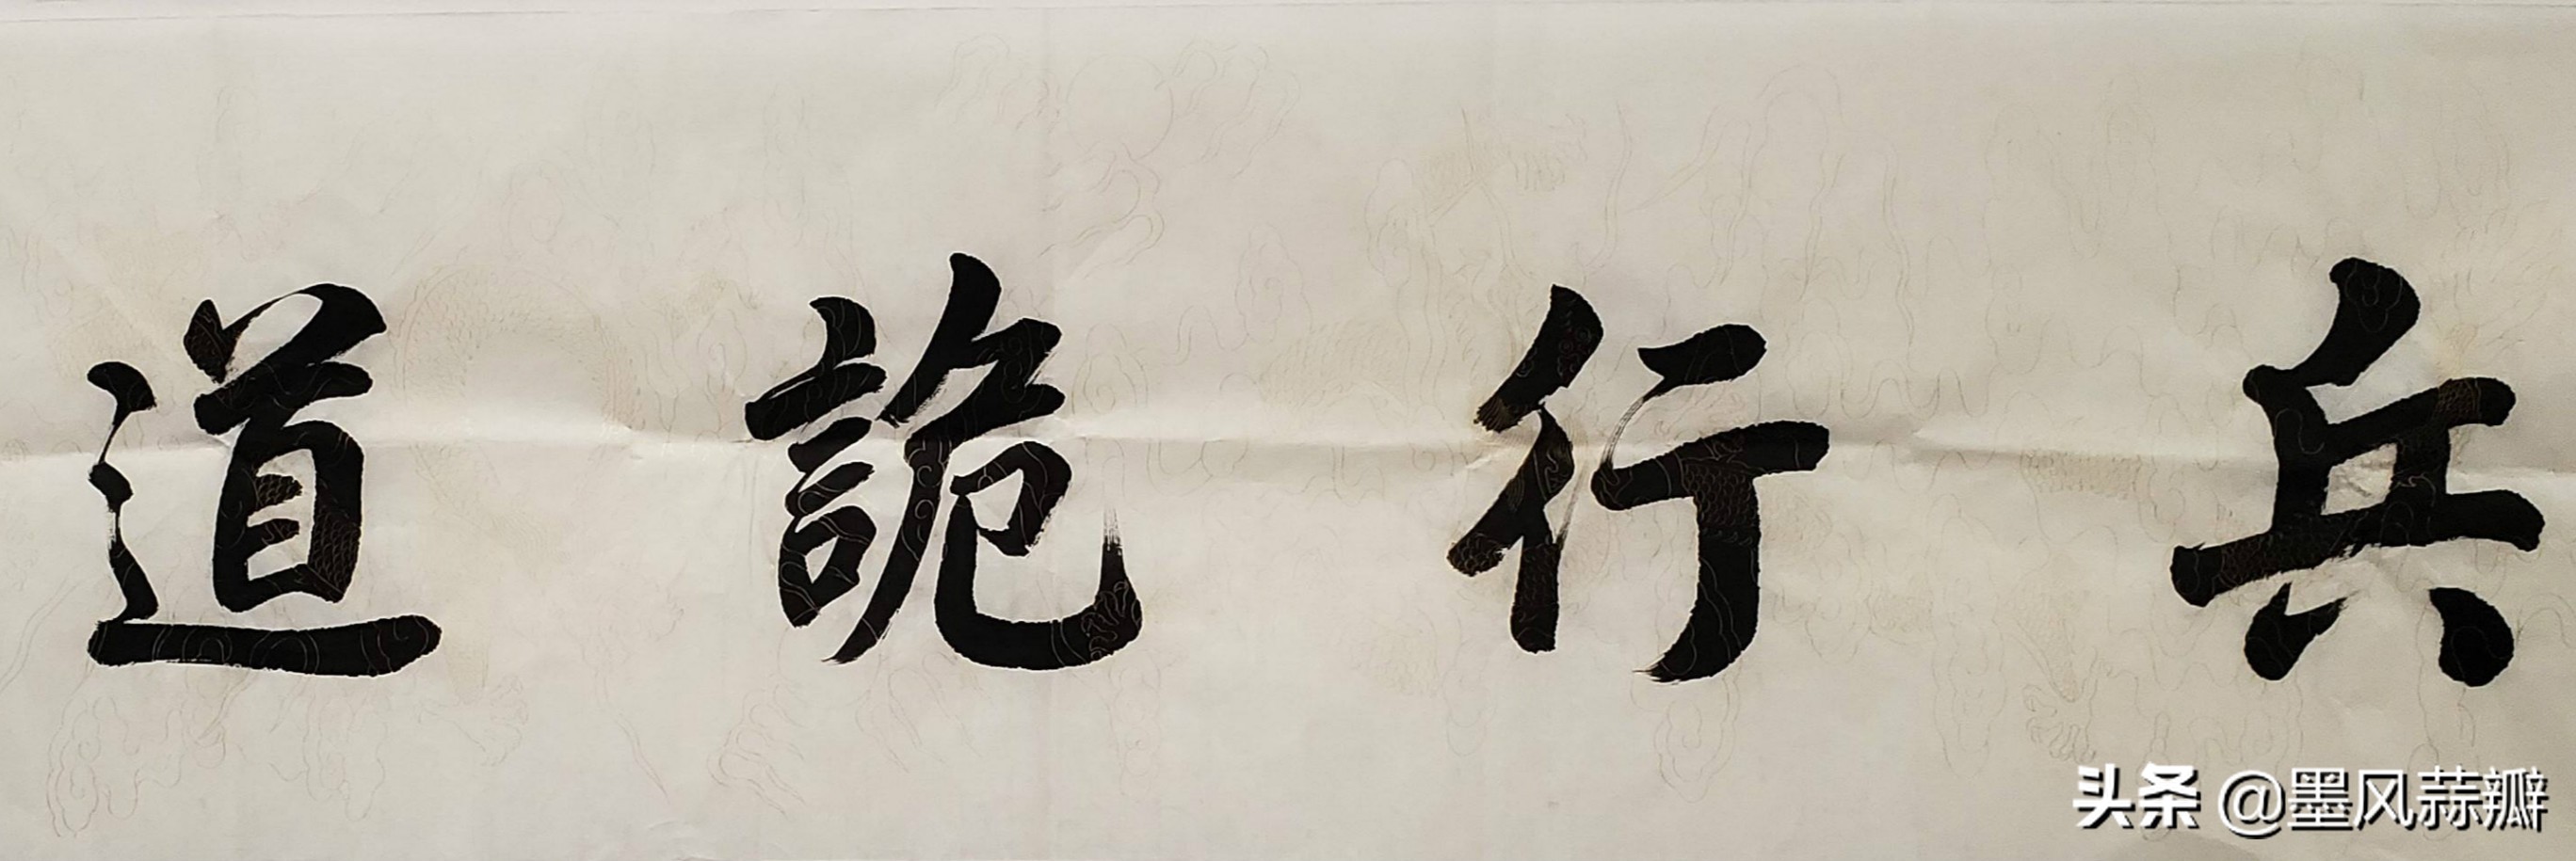 兵行詭道
头条 @墨风蒜瓣